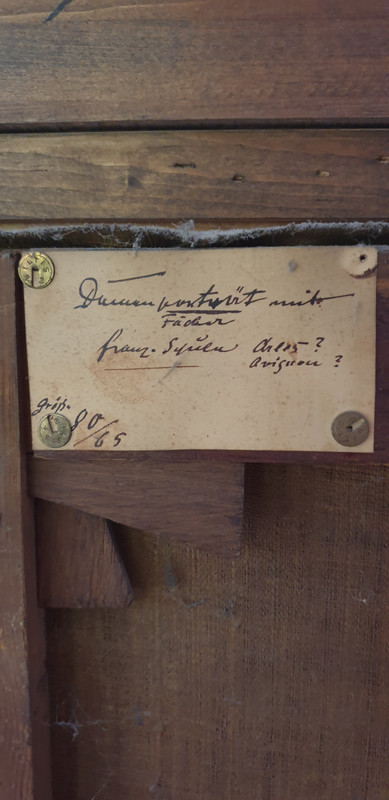 Damenporträt mit
Fächer
franz. Schule Arles?
Avignon?
größ.
80/65